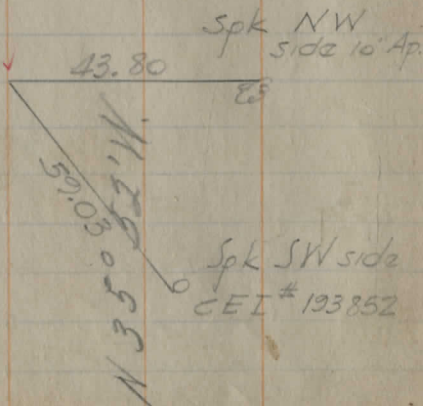 Spk NW
side 10" Ap.
43.80
59.03
N 35° 52' W.
Spk SW side
CEI # 193852